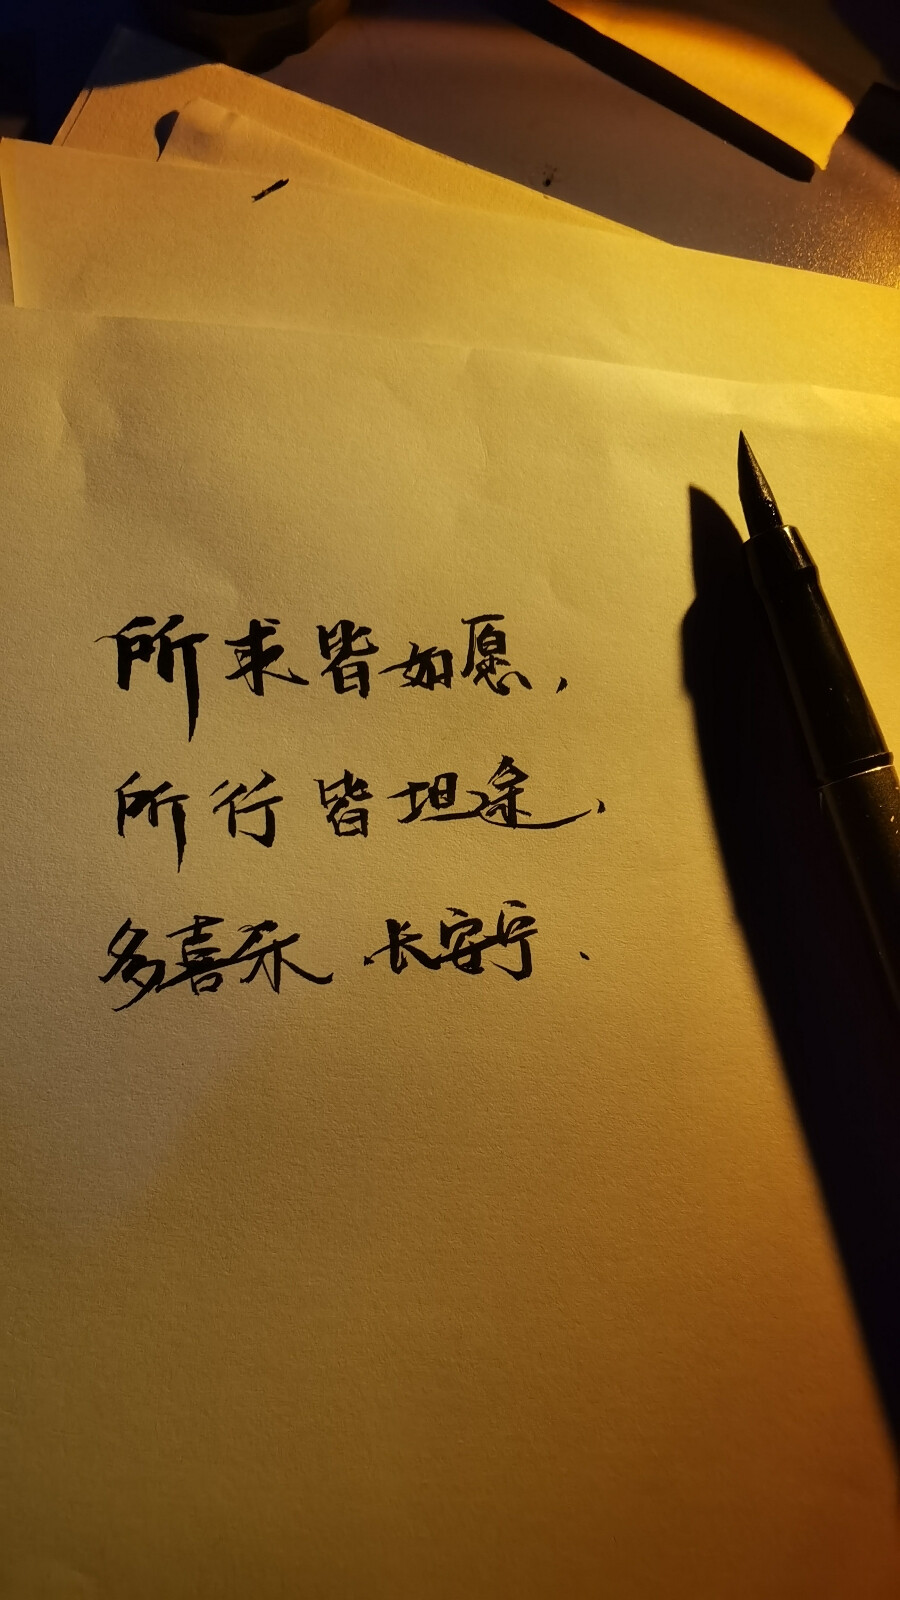 所求皆如愿，
所行皆坦途，
多喜乐 长安宁.